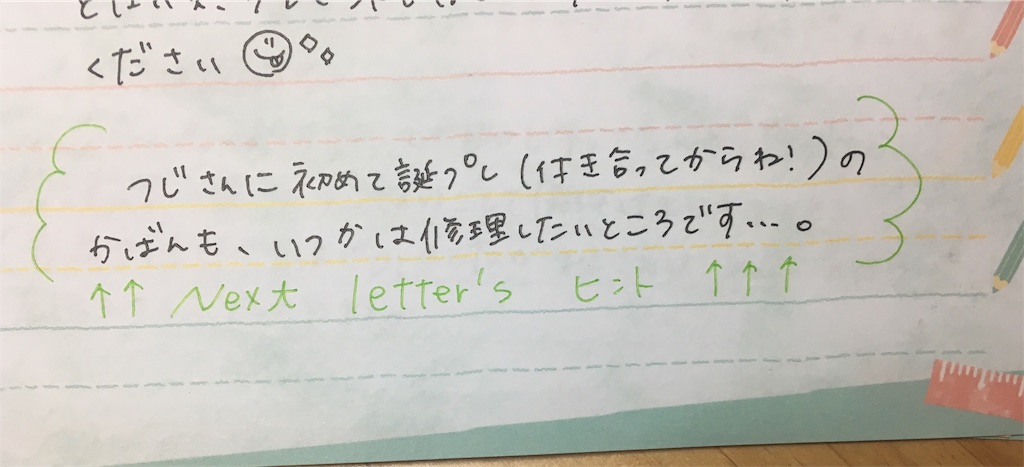 ください
つじさんに初めて誕プレ(付き合ってからね!)の
かばんも、いつかは修理したいところです…。
↑↑ Next letter's ヒント ↑↑↑